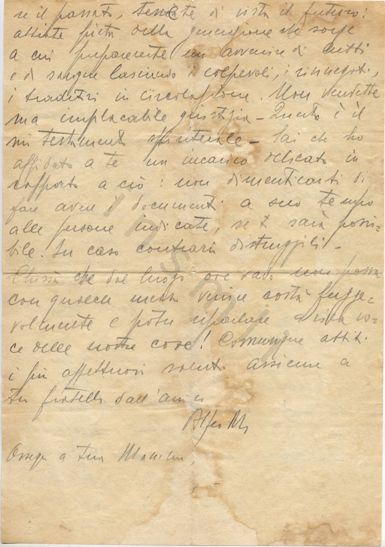 se il passato, tenete di vista il futuro:
abbiate pietà della generazione che sorge
a cui preparerete un avvenire di lutti
e di sangue lasciando i colpevoli, i rinnegati,
i traditori in circolazione. Non vendetta
ma implacabile giustizia - Questo è il
mio testamento spirituale - Sai che ho
affidato a te un incarico delicato in
rapporto a ciò: non dimenticarti di
fare avere i documenti a suo tempo
alle persone indicate, se ti sarà possi-
bile. In caso contrario distruggili -
Chissà che dal luogo ove vado non possa
con qualche mezzo venire costà fuggе-
volmente e poter riparlare a viva vo-
ce delle nostre cose! Comunque abbiti
i più affettuosi saluti assieme a
tuo fratello dall'amico
Ossequi a tua Mamma